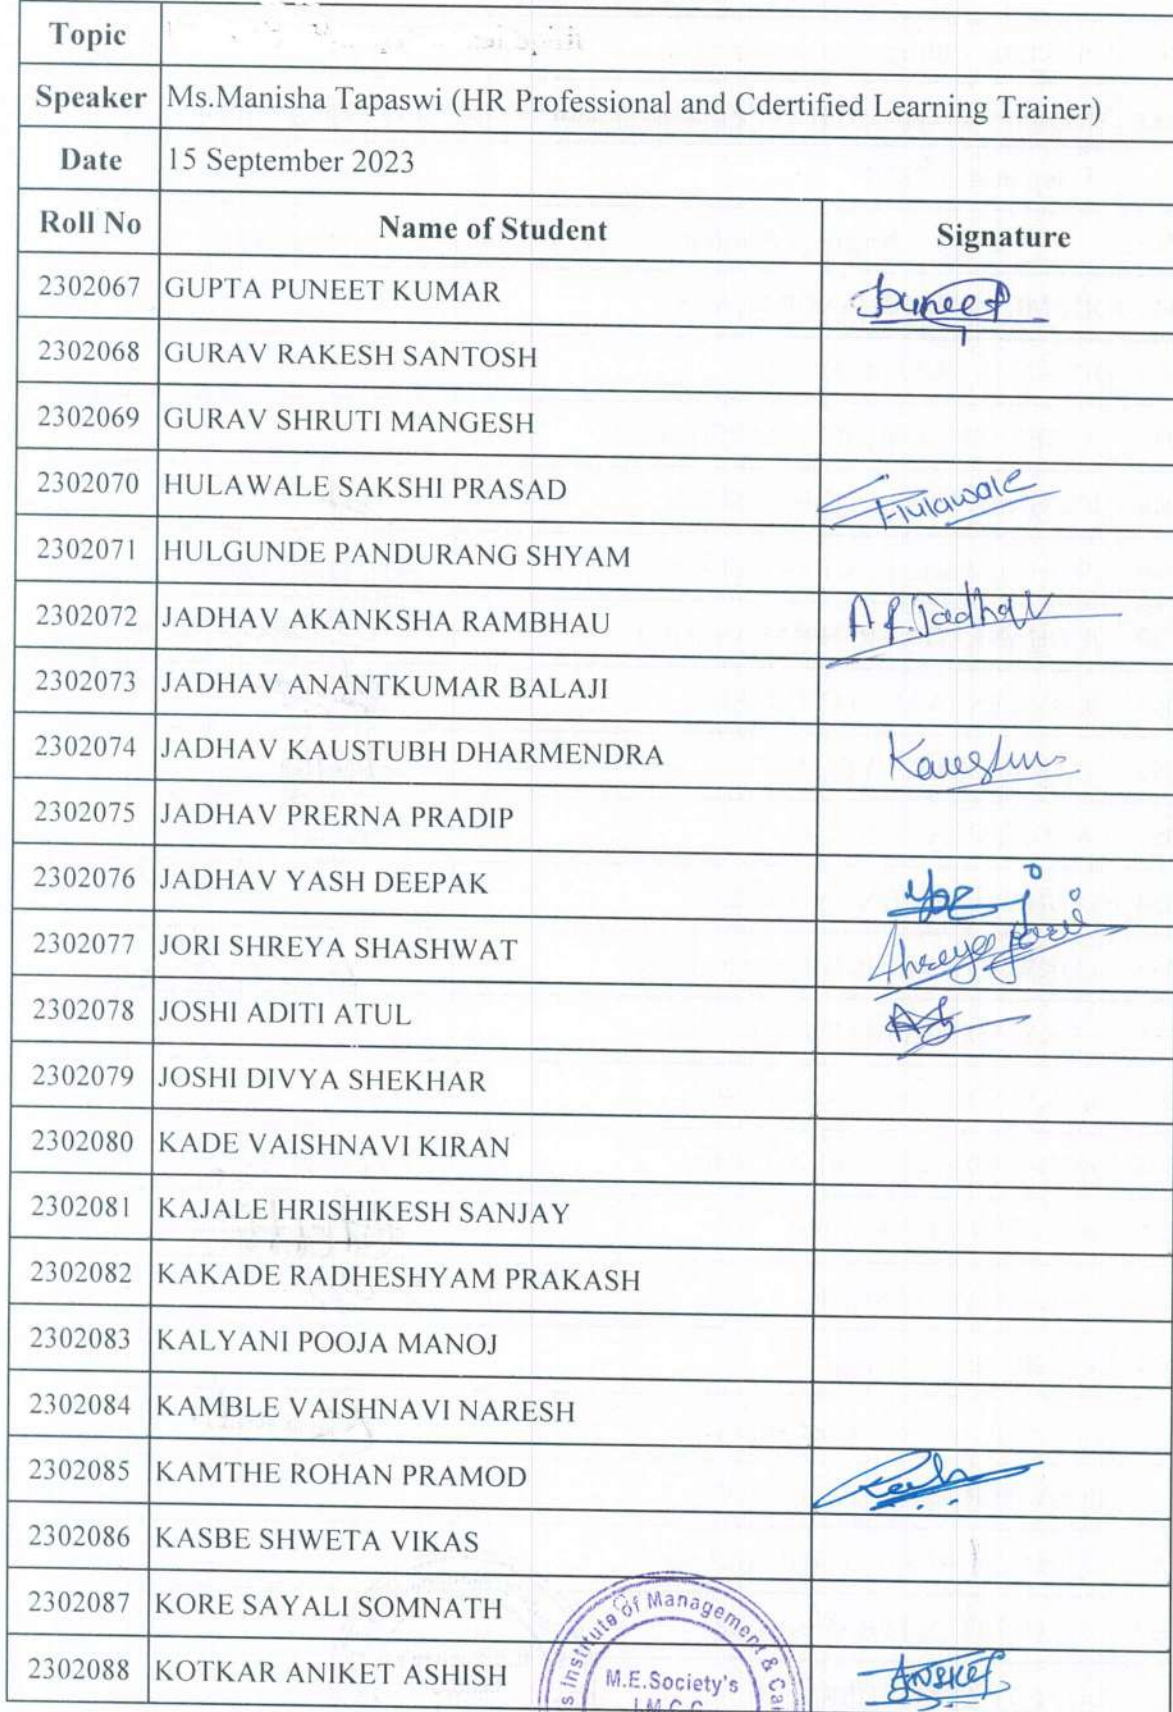 Topic
Speaker Ms.Manisha Tapaswi (HR Professional and Cdertified Learning Trainer)
Date 15 September 2023
Roll No Name of Student Signature
2302067 GUPTA PUNEET KUMAR Puneet
2302068 GURAV RAKESH SANTOSH
2302069 GURAV SHRUTI MANGESH
2302070 HULAWALE SAKSHI PRASAD Hulawale
2302071 HULGUNDE PANDURANG SHYAM
2302072 JADHAV AKANKSHA RAMBHAU A.R.Jadhav
2302073 JADHAV ANANTKUMAR BALAJI
2302074 JADHAV KAUSTUBH DHARMENDRA
2302075 JADHAV PRERNA PRADIP
2302076 JADHAV YASH DEEPAK
2302077 JORI SHREYA SHASHWAT Shreya Jori
2302078 JOSHI ADITI ATUL
2302079 JOSHI DIVYA SHEKHAR
2302080 KADE VAISHNAVI KIRAN
2302081 KAJALE HRISHIKESH SANJAY
2302082 KAKADE RADHESHYAM PRAKASH
2302083 KALYANI POOJA MANOJ
2302084 KAMBLE VAISHNAVI NARESH
2302085 KAMTHE ROHAN PRAMOD
2302086 KASBE SHWETA VIKAS
2302087 KORE SAYALI SOMNATH
2302088 KOTKAR ANIKET ASHISH Aniket
Institute of Management &
M.E.Society's
I.M.C.C.